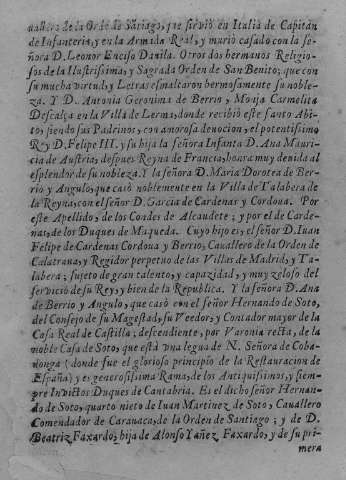 uallero de la Orde de Sãtiago, q̃ le siruiò en Italia de Capitan
de Infanteria, y en la Armada Real, y muriò casado con la se-
ñora D. Leonor Enciso Dauila. Otros dos hermanos Religio-
sos de la Ilustrissima, y Sagrada Orden de San Benito; que con
su mucha virtud, y Letras esmaltaron hermosamente su noble-
za. Y D. Antonia Geronima de Berrio, Monja Carmelita
Descalça en la Villa de Lerma, donde recibiò este santo Abi-
to, siendo sus Padrinos, con amorosa deuocion, el potentissimo
Rey D. Felipe III. y su hija la señora Infanta D. Ana Mauri-
cia de Austria, despues Reyna de Francia, honra muy deuida al
esplendor de su nobleza. Y la señora D. Maria Dorotea de Ber-
rio y Angulo, que casò noblemente en la Villa de Talabera de
la Reyna, con el señor D. Garcia de Cardenas y Cordoua. Por
este Apellido, de los Condes de Alcaudete; y por el de Carde-
nas, de los Duques de Maqueda. Cuyo hijo es, el señor D. Iuan
Felipe de Cardenas Cordoua y Berrio, Cauallero de la Orden de
Calatraua, y Regidor perpetuo de las Villas de Madrid, y Ta-
labera; sujeto de gran talento, y capazidad, y muy zeloso del
seruicio de su Rey, y bien de la Republica. Y la señora D. Ana
de Berrio y Angulo, que casò con el señor Hernando de Soto,
del Consejo de su Magestad, su Veedor, y Contador mayor de la
Casa Real de Castilla; descendiente, por Varonia recta, de la
noble Casa de Soto, que està vna legua de N. Señora de Coba-
donga (donde fue el glorioso principio de la Restauracion de
España) y es generosissima Rama, de los Antiquissimos, y siem-
pre Inuictos Duques de Cantabria. Es el dicho señor Hernan-
do de Soto, quarto nieto de Iuan Martinez de Soto, Cauallero
Comendador de Carauaca, de la Orden de Santiago; y de D.
Beatriz Faxardo, hija de Alonso Yañez Faxardo, y de su pri-
mera